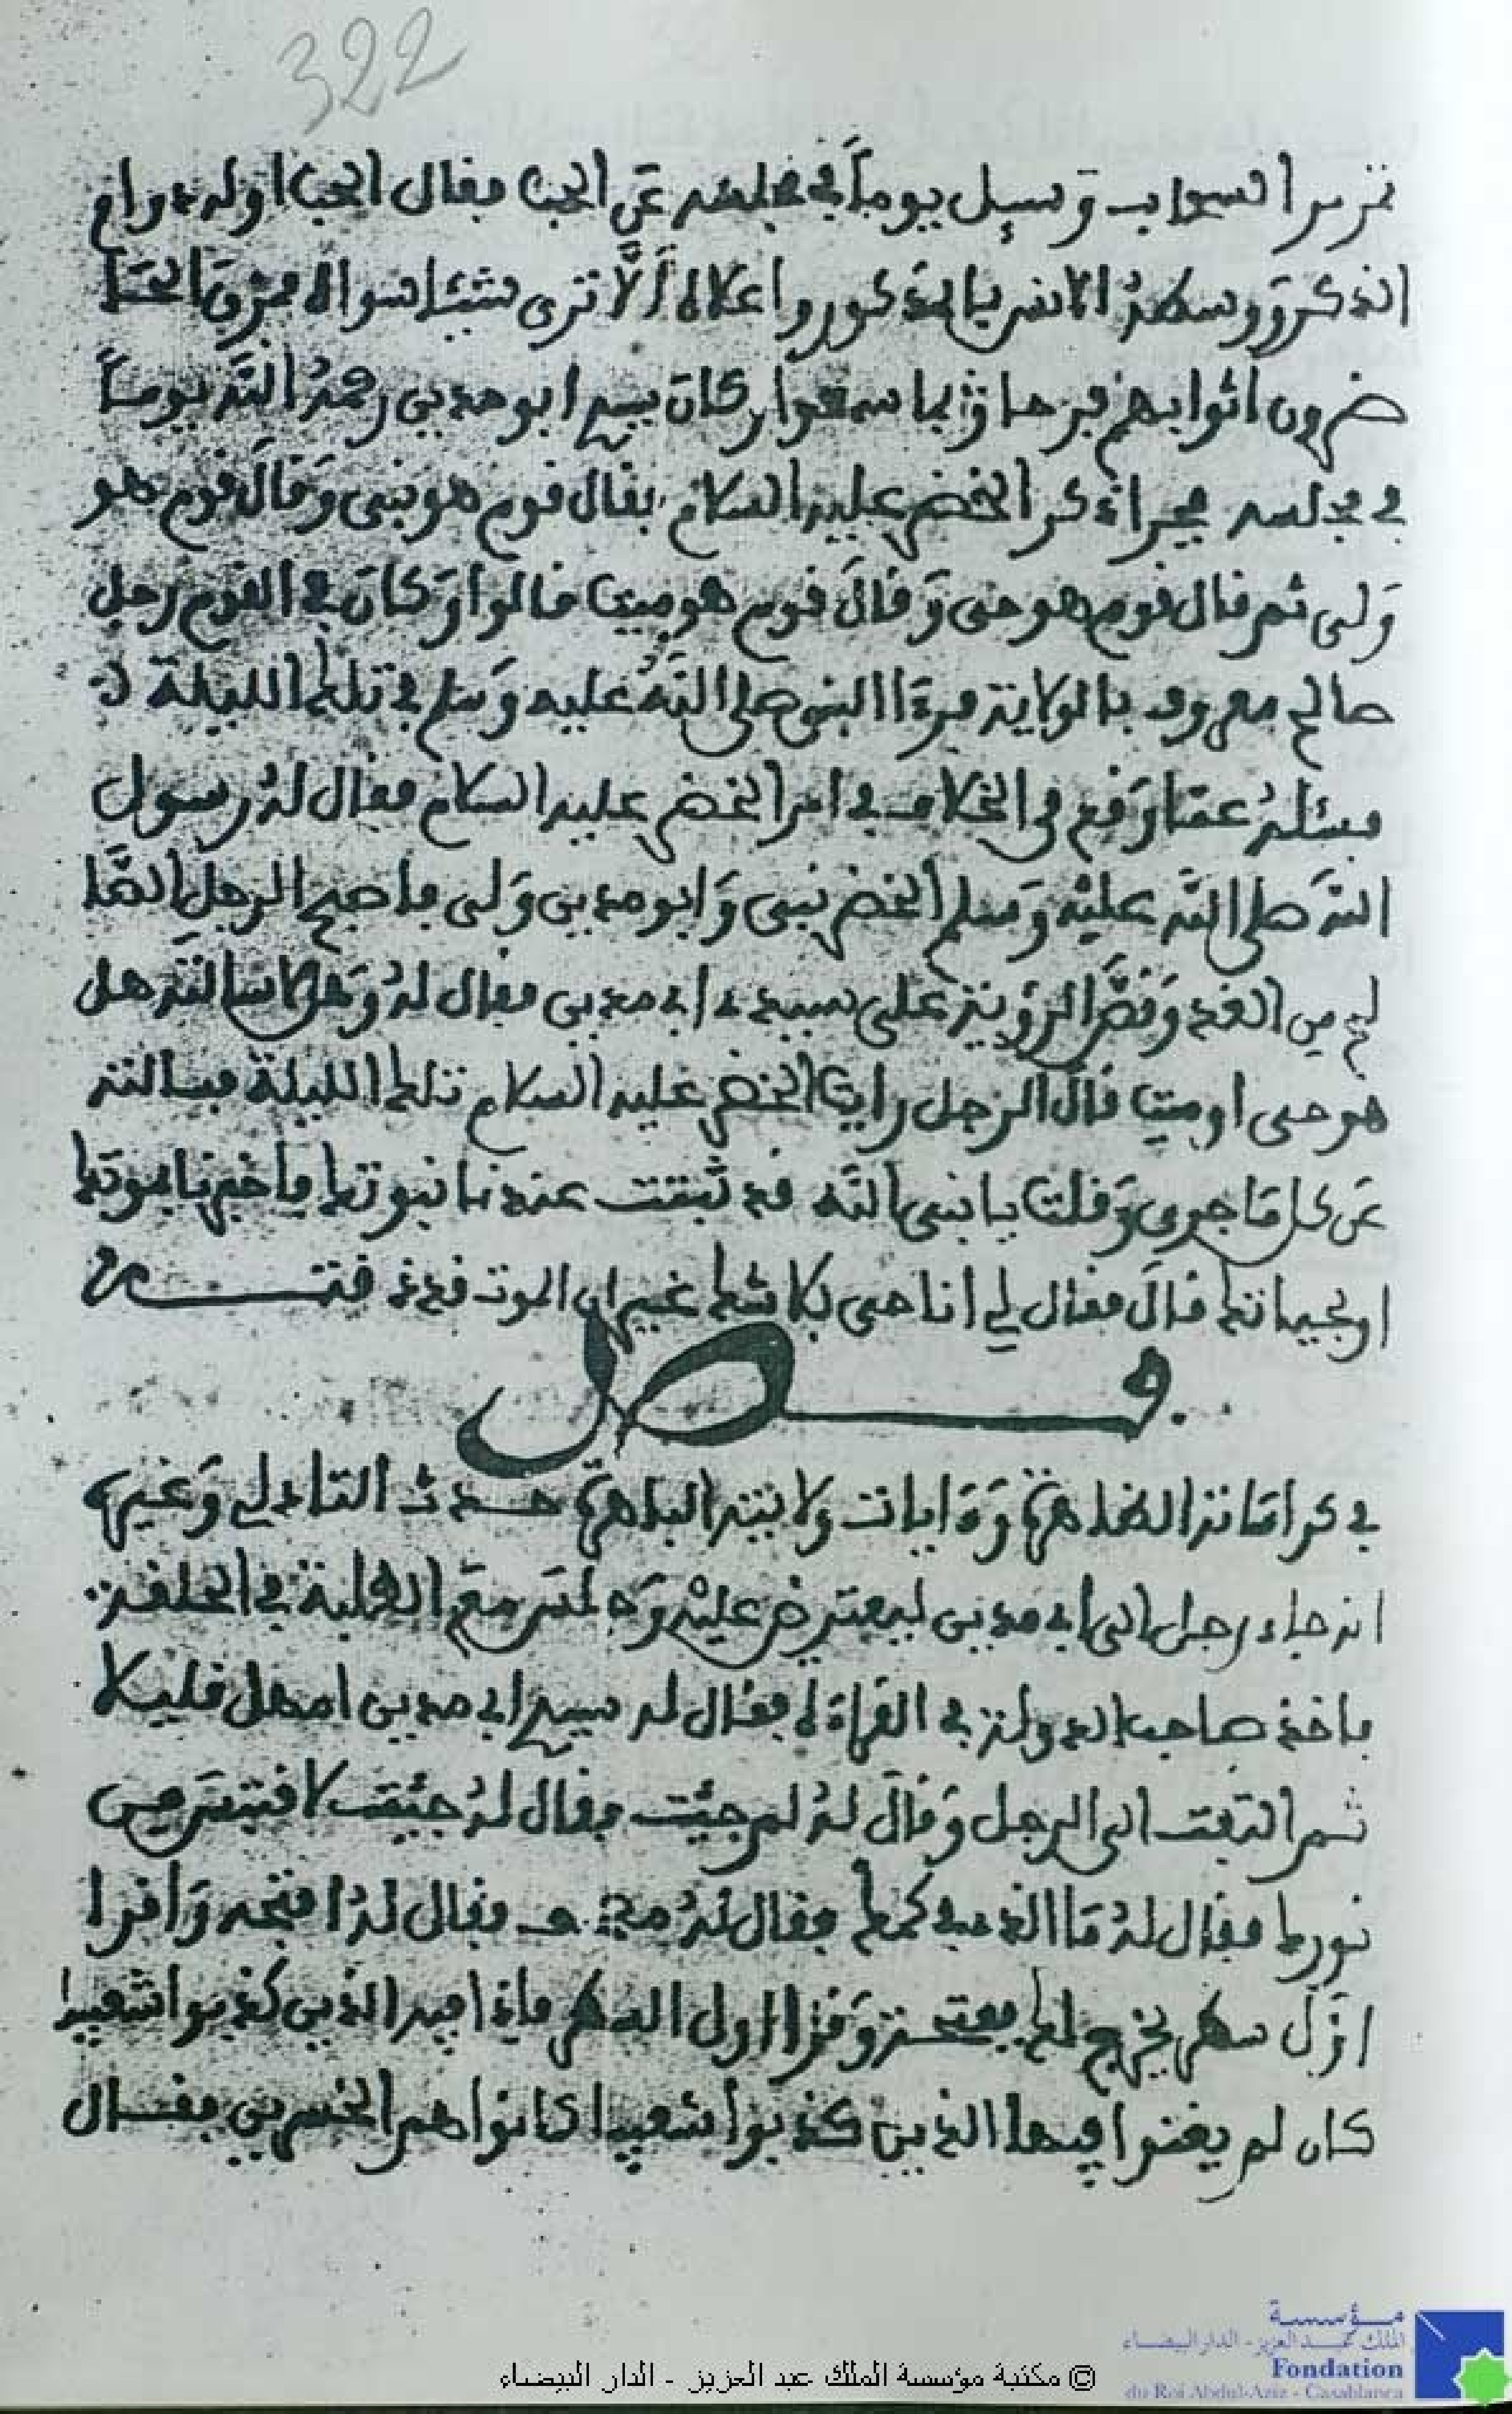 322
تمر مر السحاب وسيل يوما في مجلسه عن الحب فقال الحب اوله دوام
الذكر ووسطه الانس بالمذكور واعلاه الا ترى شيئا سواه فمزق الحا
ضرون اثوابهم فرحا بما سمعوا وكان سيدي ابو مدين رحمه الله يوما
في مجلسه فجرا ذكر الخضر عليه السلام فقال قوم هو نبي وقال قوم هو
ولي ثم قال قوم هو حي وقال قوم هو ميت قالوا وكان في القوم رجل
صالح معروف بالولاية فرءا النبي صلى الله عليه وسلم في تلك الليلة
فسئله عما وقع في الخلاف في امر الخضر عليه السلام فقال له رسول
الله صلى الله عليه وسلم الخضر نبي وابو مدين ولي فاصبح الرجل الصا
لح من الغد وقص الرؤية على سيدي ابي مدين فقال له وهلا سالته هل
هو حي او ميت قال الرجل رايت الخضر عليه السلام تلك الليلة فسالته
عن كل ما جرى وقلت يا نبي الله قد ثبتت عندنا نبوتك فاخبرنا بموتك
او بحياتك قال فقال لي انا حي بلا شك غير ان الموت قد
فصل
في كراماته الظاهرة وءايات ولايته الباهرة حدث التادلي وغيره
انه جاء رجل الى ابي مدين ليعترض عليه وجلس مع الطلبة في الحلقة
فاخذ صاحب الدولة في القراءة فقال له سيدي ابي مدين امهل قليلا
ثم التفت الى الرجل وقال له لم جئت فقال له جئت لاقتبس من
نورك فقال له ما الذي في كمك فقال له مصحف فقال له افتحه واقرا
اول سطر يخرج لك ففتحه وقرا اول السطر فاذا فيه الذين كذبوا شعيبا
كان لم يغنوا فيها الذين كذبوا شعيبا كانوا هم الخسرين فقال
© مكتبة مؤسسة الملك عبد العزيز - الدار البيضاء
مؤسسة
الملك عبد العزيز - الدار البيضاء
Fondation
du Roi Abdul-Aziz - Casablanca